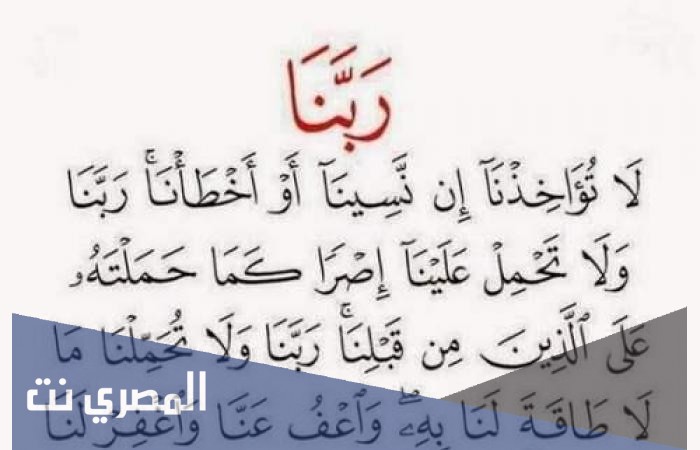 رَبَّنَا
لَا تُؤَاخِذْنَآ إِن نَّسِينَآ أَوْ أَخْطَأْنَاۚ رَبَّنَا
وَلَا تَحْمِلْ عَلَيْنَآ إِصْرًا كَمَا حَمَلْتَهُۥ
عَلَى ٱلَّذِينَ مِن قَبْلِنَاۚ رَبَّنَا وَلَا تُحَمِّلْنَا مَا
لَا طَاقَةَ لَنَا بِهِۦۖ وَٱعْفُ عَنَّا وَٱغْفِرْ لَنَا
المصري نت